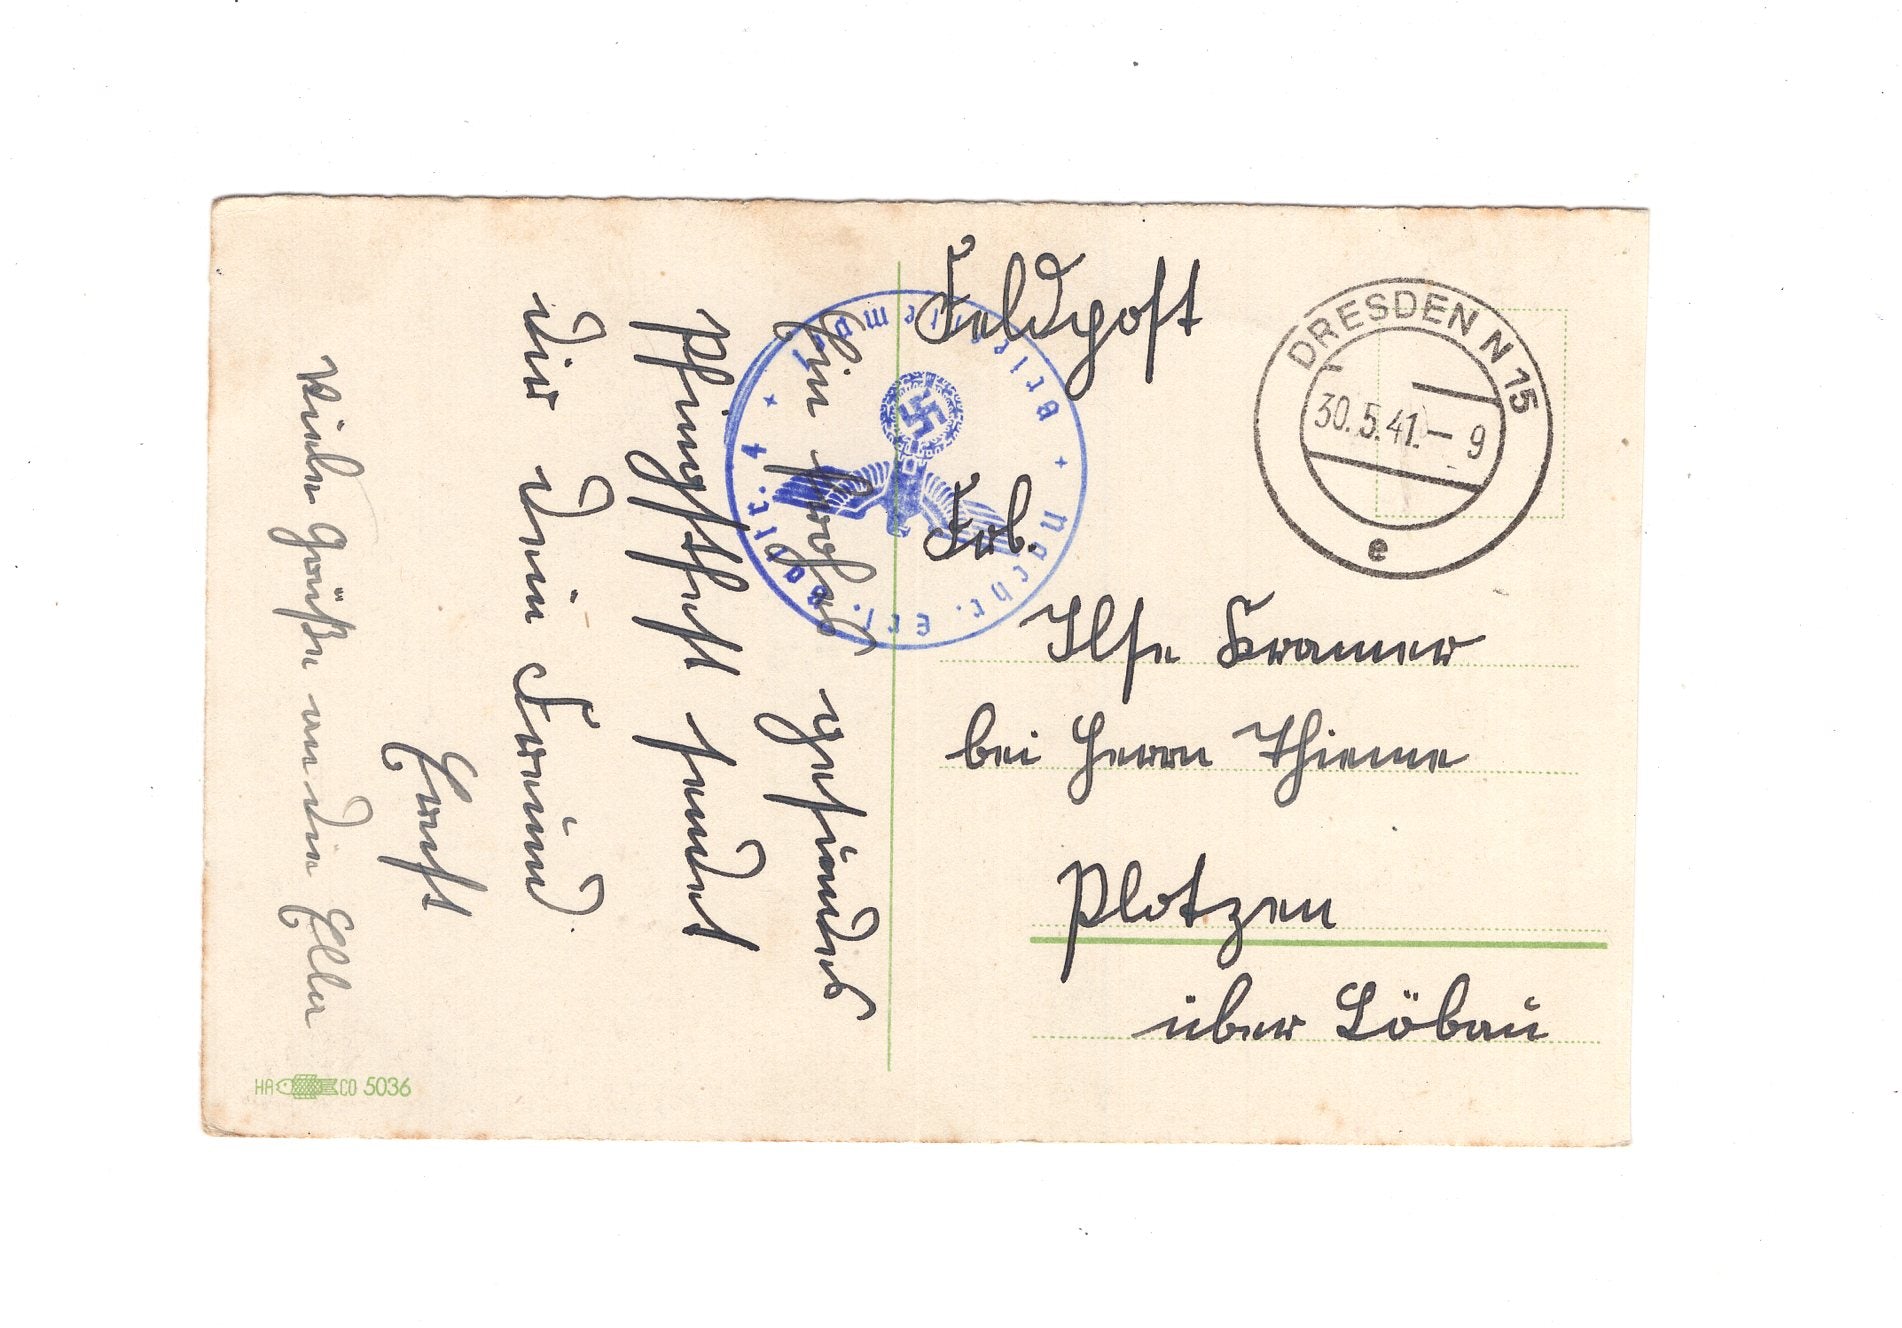 Feldpost
Frl.
Ilse Kramer
bei Herrn Thieme
Plotzen
über Löbau
DRESDEN N 15
30.5.41.-9
e
Briefstempel
Nachr. Ers. Abt. 4
Ein frohes gesundes
Pfingstfest sendet
Dir Dein Freund.
Ernst
Viele Grüße an die Eltern
HA CO 5036